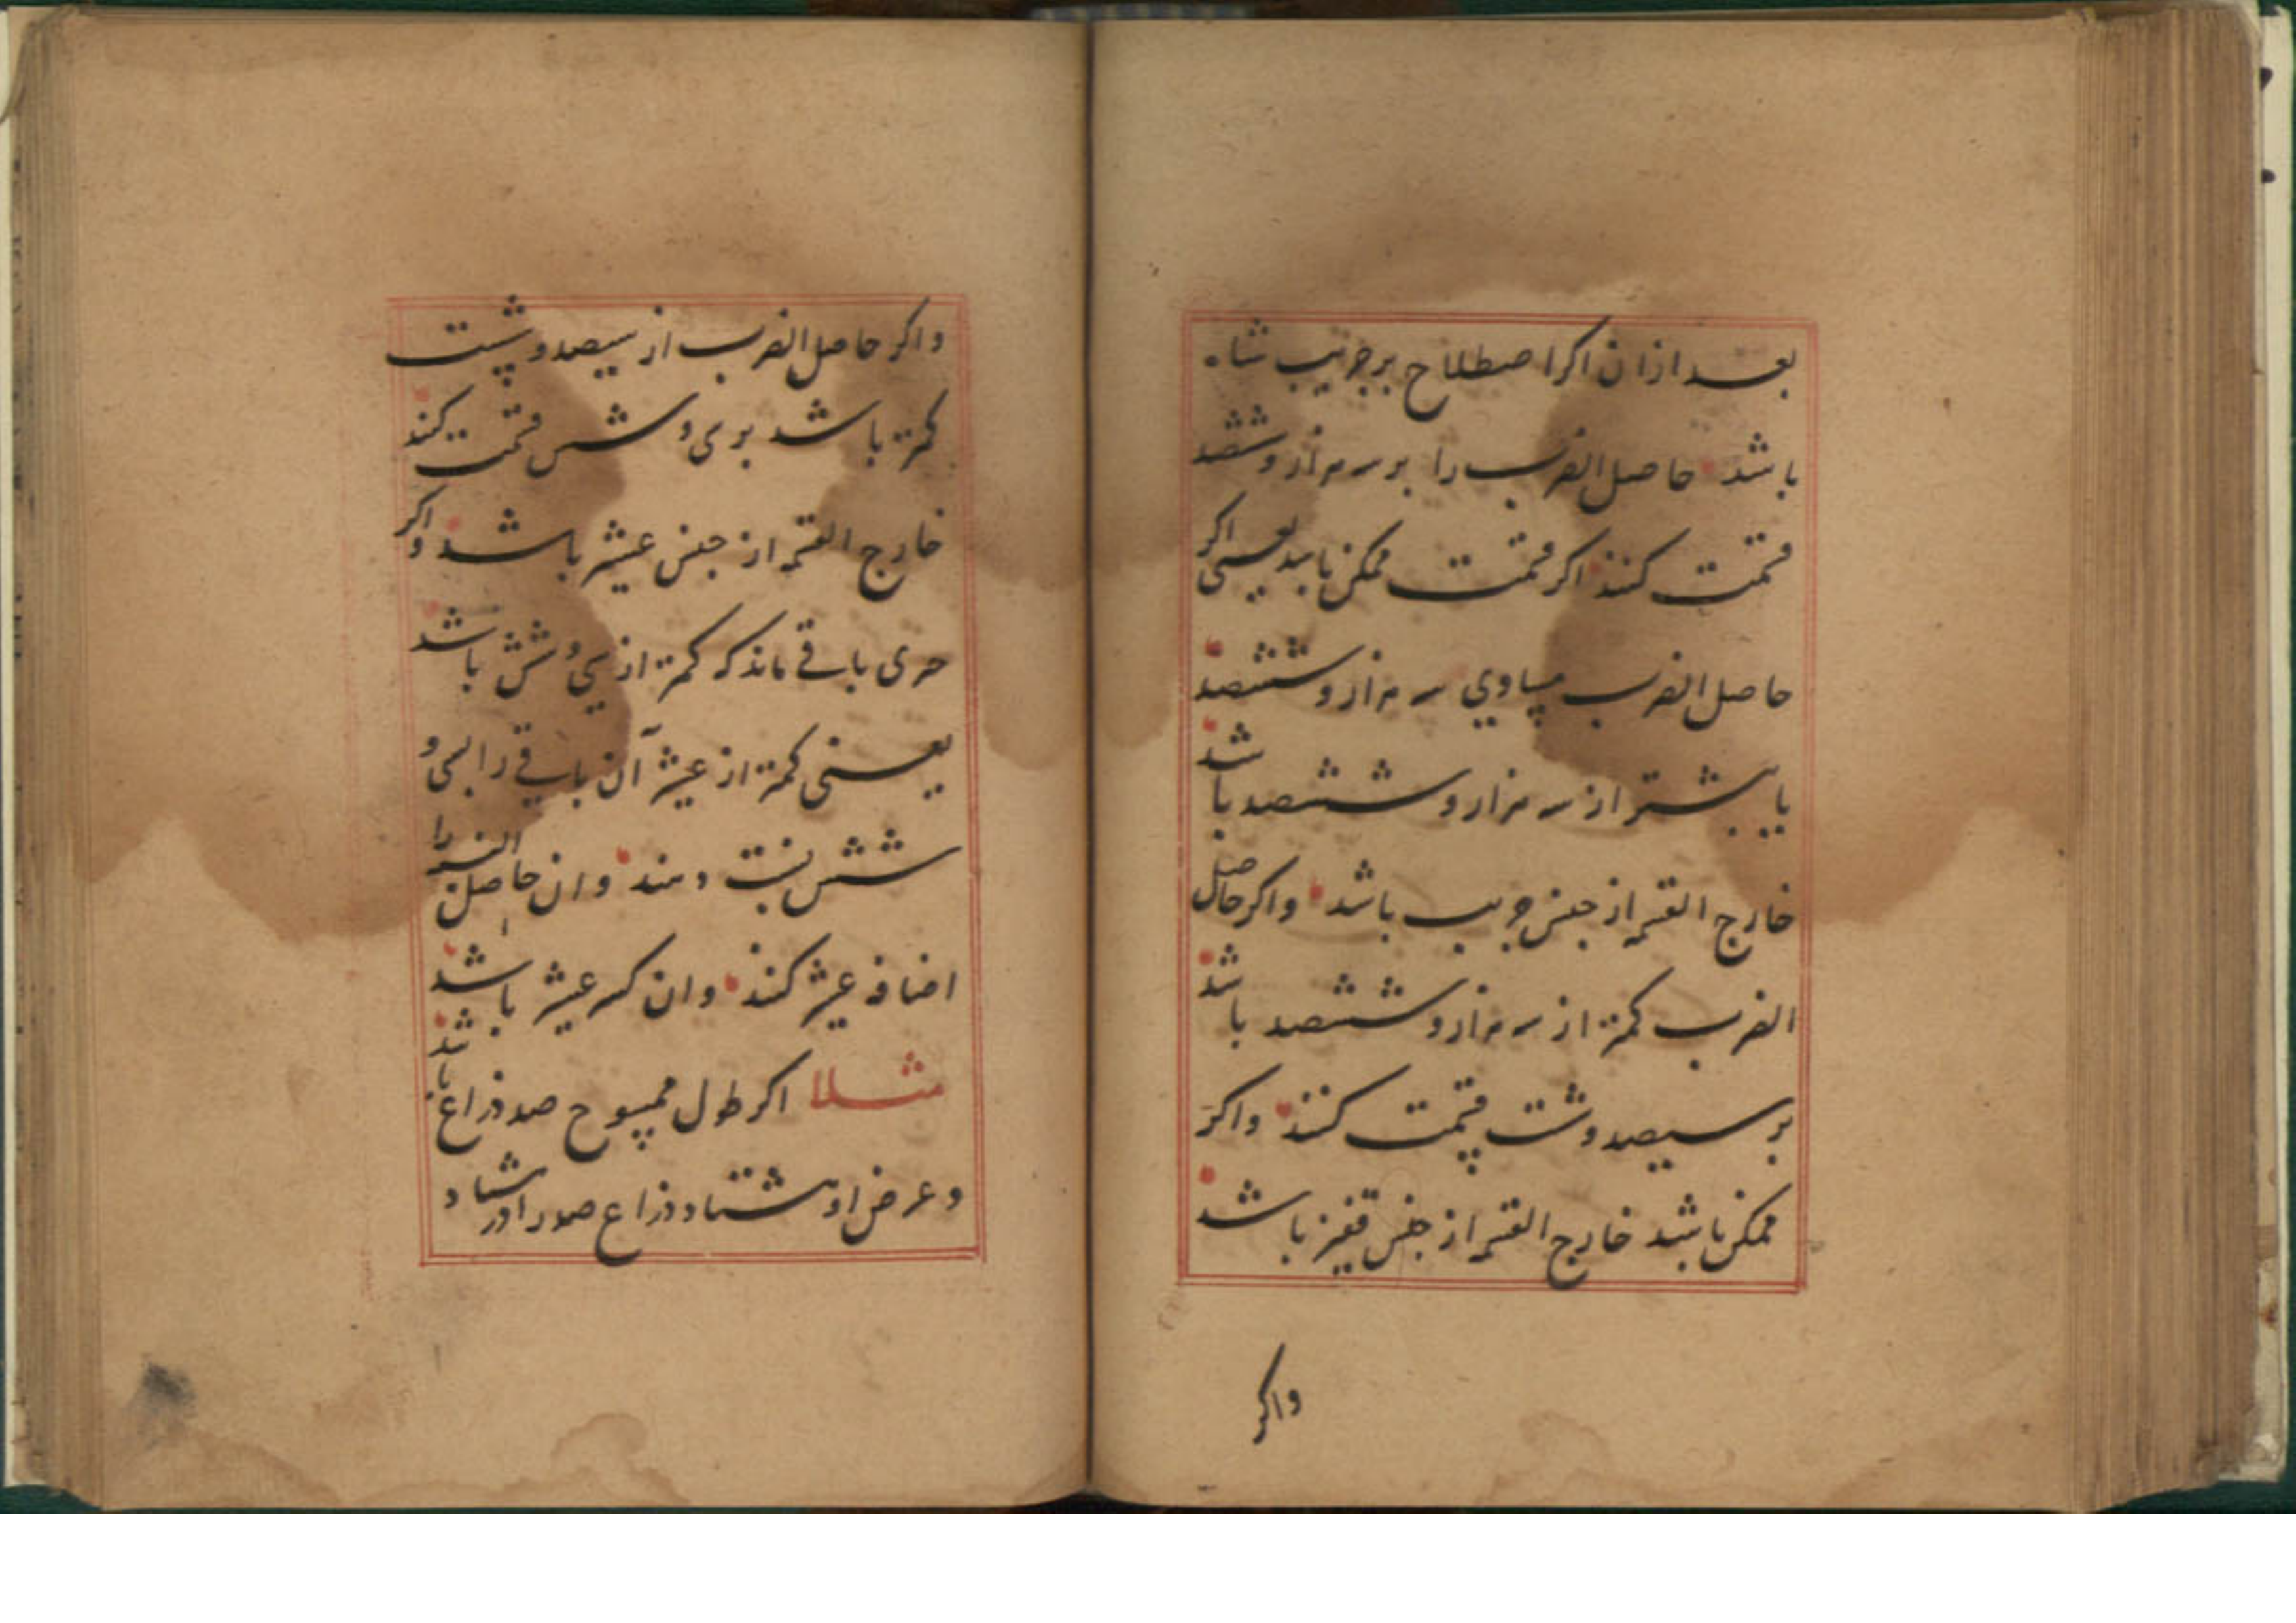 بعد ازان اکر اصطلاح بر جریب شاه
باشد حاصل الضرب را بر سه هزار و ششصد
قسمت کنند اکر قسمت ممکن باشد یعنی اکر
حاصل الضرب مساوی سه هزار و ششصد
یا بیشتر از سه هزار و ششصد باشد
خارج القسمه از جنس جریب باشد واکر حاصل
الضرب کمتر از سه هزار و ششصد باشد
بر سیصد و شست قسمت کنند واکر
ممکن باشد خارج القسمه از جنس قفیز باشد
واکر
واکر حاصل الضرب از سیصد و شست
کمتر باشد بر سی و شش قسمت کنند
خارج القسمه از جنس عشیر باشد واکر
حری باقی ماند که کمتر از سی و شش باشد
یعنی کمتر از عشیر آن باقی را بسی و
شش نسبت دهند وان حاصل النسبه را
اضافه عشیر کنند وان کسر عشیر باشد
مثلا اکر طول ممسوح صد ذراع باشد
و عرض او هشتاد ذراع صد را در هشتاد